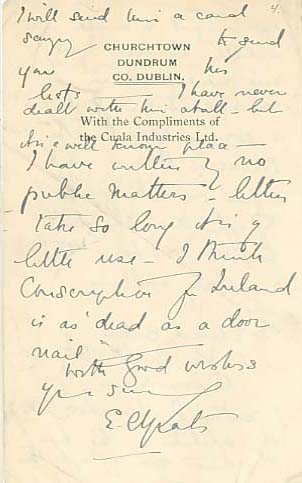 4.
I will send him a card
saying to send
you his
lists — I have never
dealt with him at all — but
it is a well known place —
CHURCHTOWN
DUNDRUM
CO. DUBLIN.
With the Compliments of
the Cuala Industries Ltd.
I have written of no
public matters — letters
take so long it is of
little use — I think
Conscription for Ireland
is as "dead as a door
nail"
With good wishes
yrs sin
E. C. Yeats